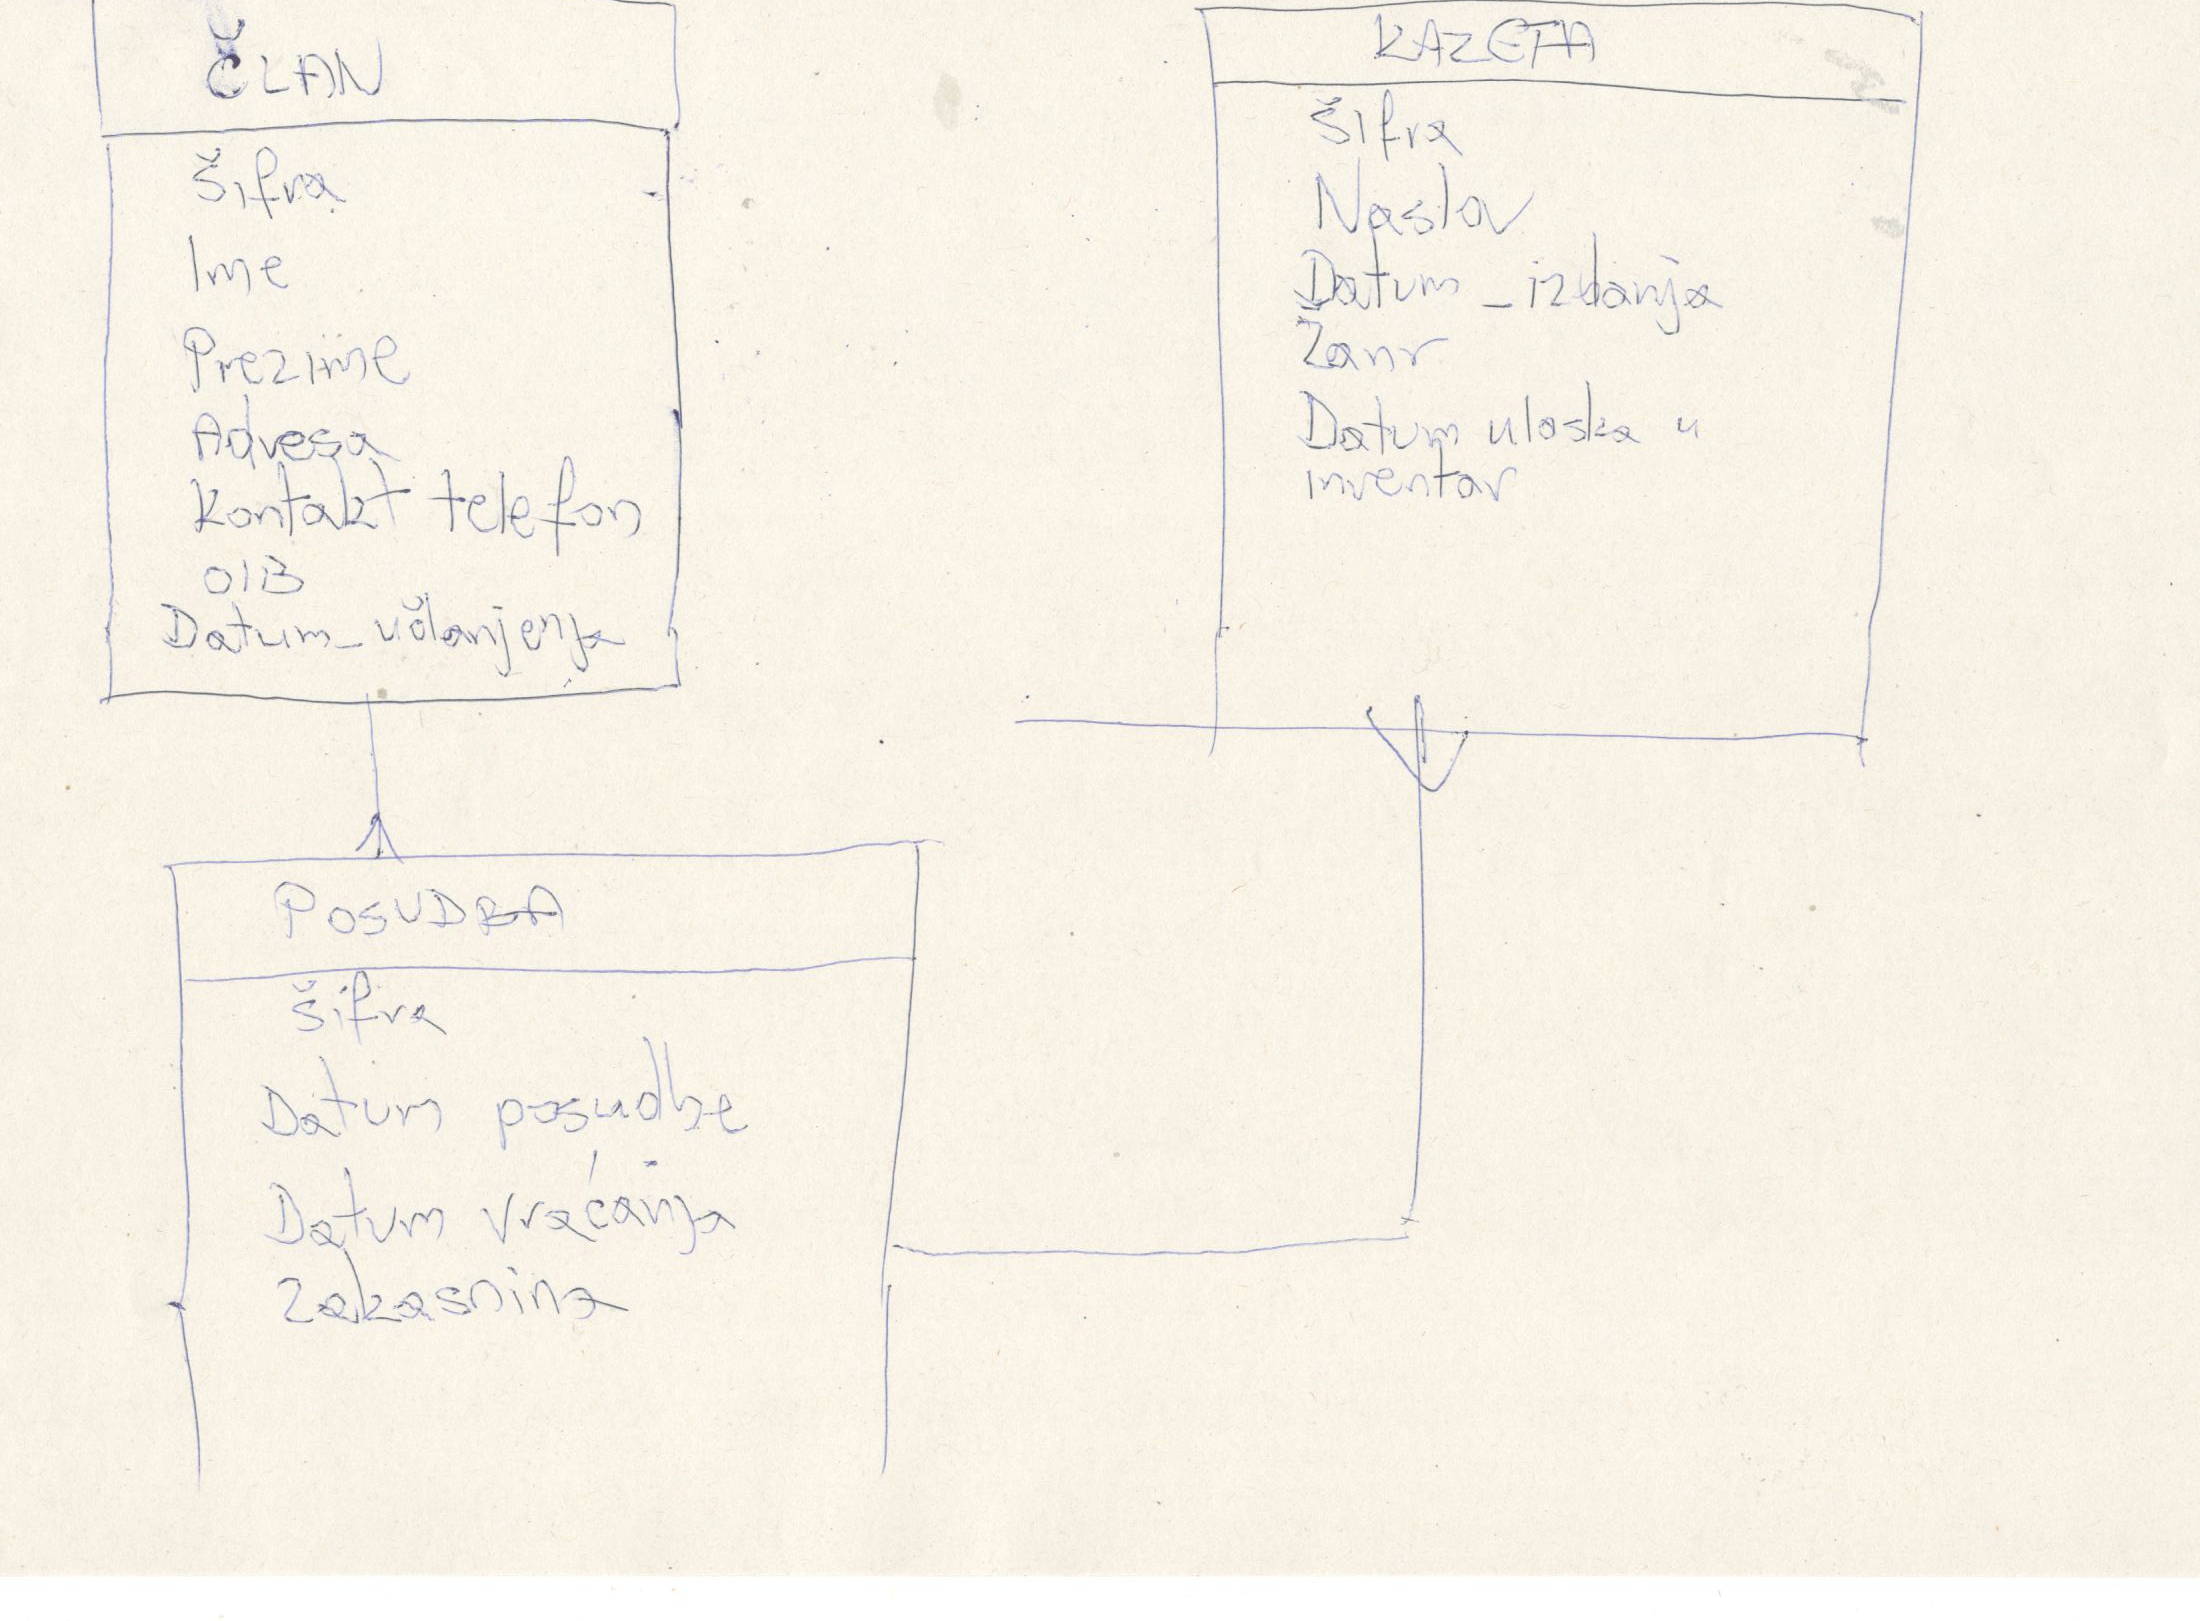 ČLAN
Šifra
Ime
Prezime
Adresa
Kontakt telefon
OIB
Datum_učlanjenja
KAZETA
Šifra
Naslov
Datum_izdanja
Žanr
Datum uloska u
inventar
POSUDBA
Šifra
Datum posudbe
Datum vraćanja
Zakasnina